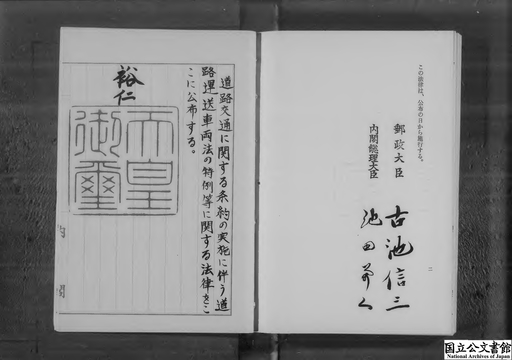 この法律は、公布の日から施行する。
郵政大臣
古池信三
内閣総理大臣
池田勇人
道路交通に関する条約の実施に伴う道
路運送車両法の特例等に関する法律をこ
こに公布する。
裕仁
天皇
御璽
二
国立公文書館
National Archives of Japan